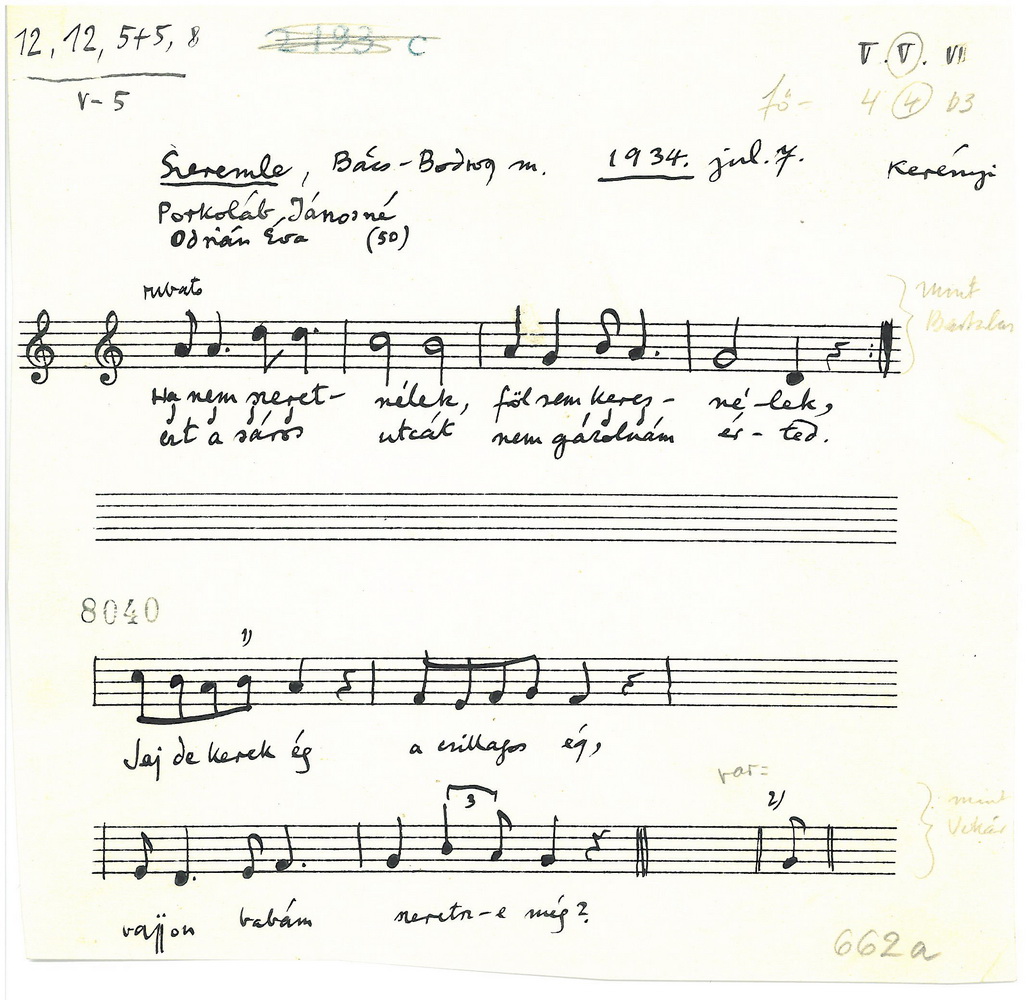 12, 12, 5+5, 8
2193 C
V. V. VII
V-5
fő- 4 4 b3
Szeremle, Bács-Bodrog m. 1934. jul. 7. Kerényi
Porkoláb Jánosné
Odrián Éva (50)
rubato
mint
Ha nem szeret- nélek, föl sem keres- né-lek,
ezt a sáros utcát nem gázolnám ér- ted.
8040
1)
Jaj de kerek ég a csillagos ég,
var=
3 2)
mint
Vikár
vajjon babám szeretsz-e még?
662a